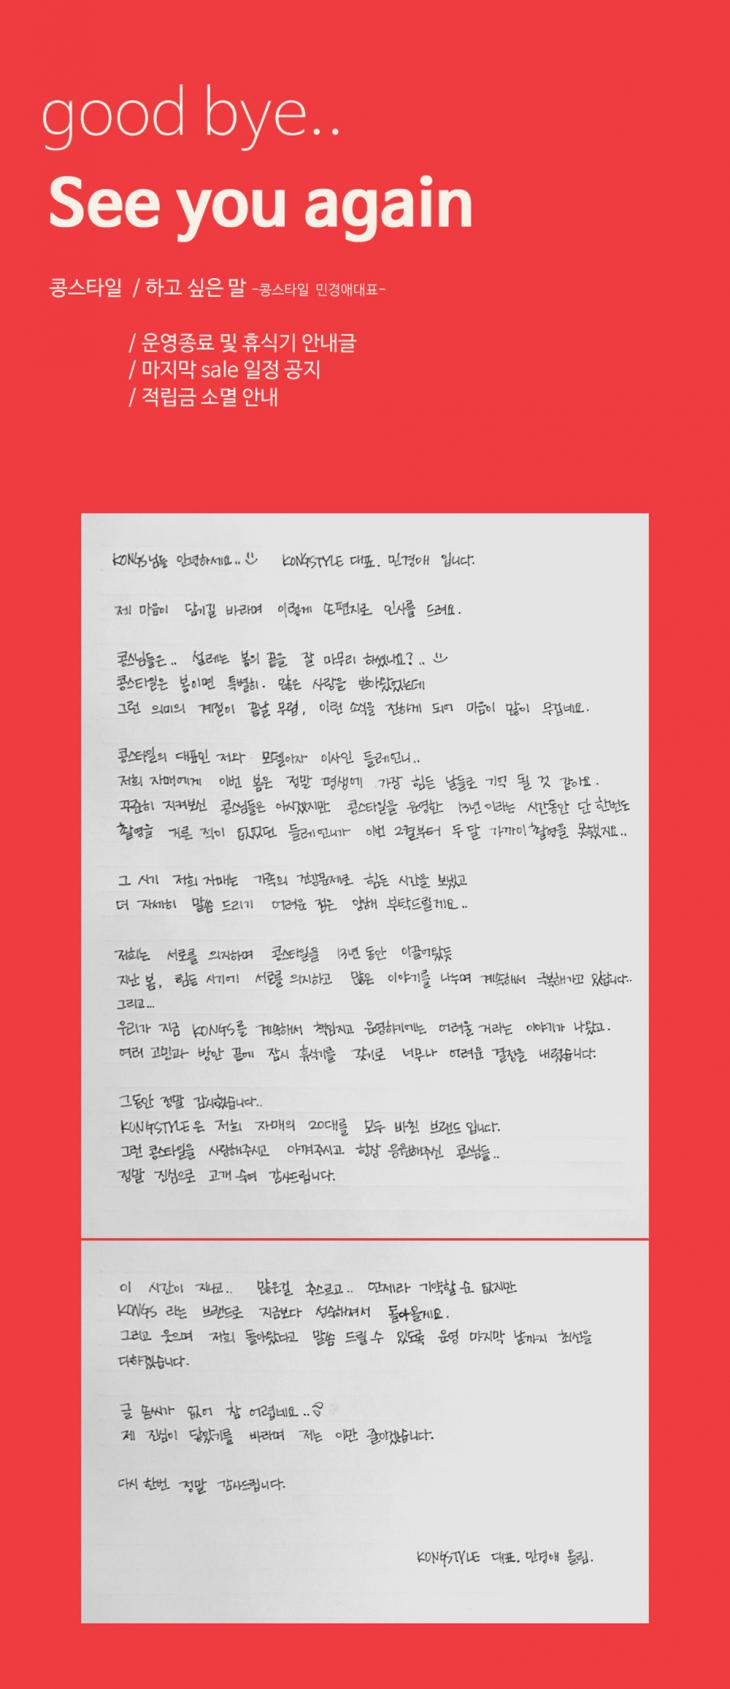 good bye..
See you again
콩스타일 / 하고 싶은 말 -콩스타일 민경애대표-
/ 운영종료 및 휴식기 안내글
/ 마지막 sale 일정 공지
/ 적립금 소멸 안내
KONGS님들 안녕하세요.. KONGSTYLE 대표. 민경애 입니다.
제 마음이 담기길 바라며 이렇게 또 편지로 인사를 드려요.
콩스님들은.. 설레는 봄의 끝을 잘 마무리 하셨나요?..
콩스타일은 봄이면 특별히. 많은 사랑을 받아왔었는데
그런 의미의 계절이 끝날 무렵, 이런 소식을 전하게 되어 마음이 많이 무겁네요.
콩스타일의 대표인 저와 모델이자 이사인 들레언니..
저희 자매에게 이번 봄은 정말 평생에 가장 힘든 날들로 기억 될 것 같아요.
꾸준히 지켜보신 콩스님들은 아시겠지만 콩스타일을 운영한 13년이라는 시간동안 단 한번도
촬영을 거른 적이 없었던 들레언니가 이번 2월부터 두달 가까이 촬영을 못했지요..
그 시기 저희 자매는 가족의 건강문제로 힘든 시간을 보냈고
더 자세히 말씀 드리기 어려운 점은 양해 부탁드릴게요..
저희는 서로를 의지하며 콩스타일을 13년 동안 이끌어왔듯
지난 봄, 힘든 시기에 서로를 의지하고 많은 이야기를 나누며 계속해서 극복해가고 있습니다..
그리고...
우리가 지금 KONGS를 계속해서 책임지고 운영하기에는 어려울 거라는 이야기가 나왔고.
여러 고민과 방안 끝에 잠시 휴식기를 갖기로 너무나 어려운 결정을 내렸습니다.
그동안 정말 감사했습니다..
KONGSTYLE은 저희 자매의 20대를 모두 바친 브랜드 입니다.
그런 콩스타일을 사랑해주시고 아껴주시고 항상 응원해주신 콩스님들..
정말 진심으로 고개 숙여 감사드립니다.
이 시간이 지나고.. 많은걸 추스르고.. 언제라 기약할 순 없지만
KONGS 라는 브랜드로 지금보다 성숙해져서 돌아올게요.
그리고 웃으며 저희 돌아왔다고 말씀 드릴 수 있도록 운영 마지막 날까지 최선을
다하겠습니다.
글 솜씨가 없어 참 어렵네요..
제 진심이 닿았기를 바라며 저는 이만 줄이겠습니다.
다시 한번 정말 감사드립니다.
KONGSTYLE 대표. 민경애 올림.